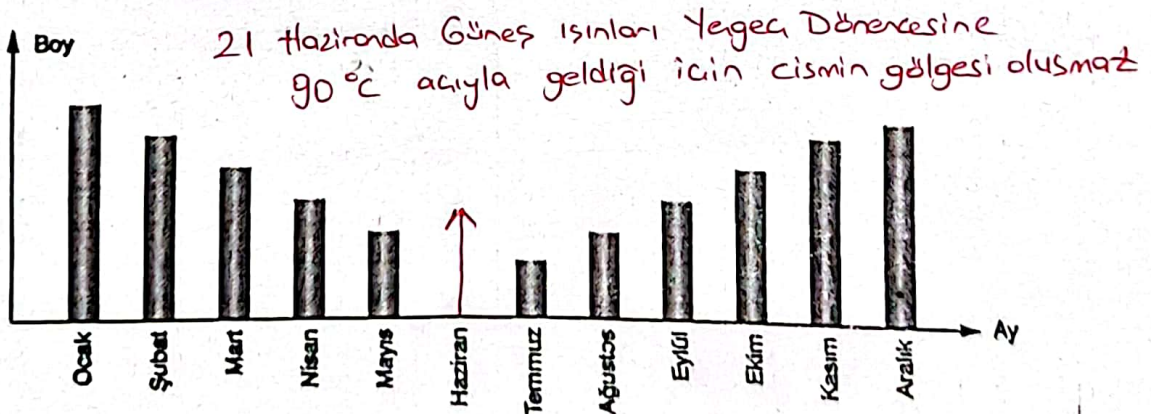 Boy
21 Haziranda Güneş ışınları Yengeç Dönencesine
90 °C açıyla geldiği için cismin gölgesi oluşmaz
Ocak
Şubat
Mart
Nisan
Mayıs
Haziran
Temmuz
Ağustos
Eylül
Ekim
Kasım
Aralık
Ay